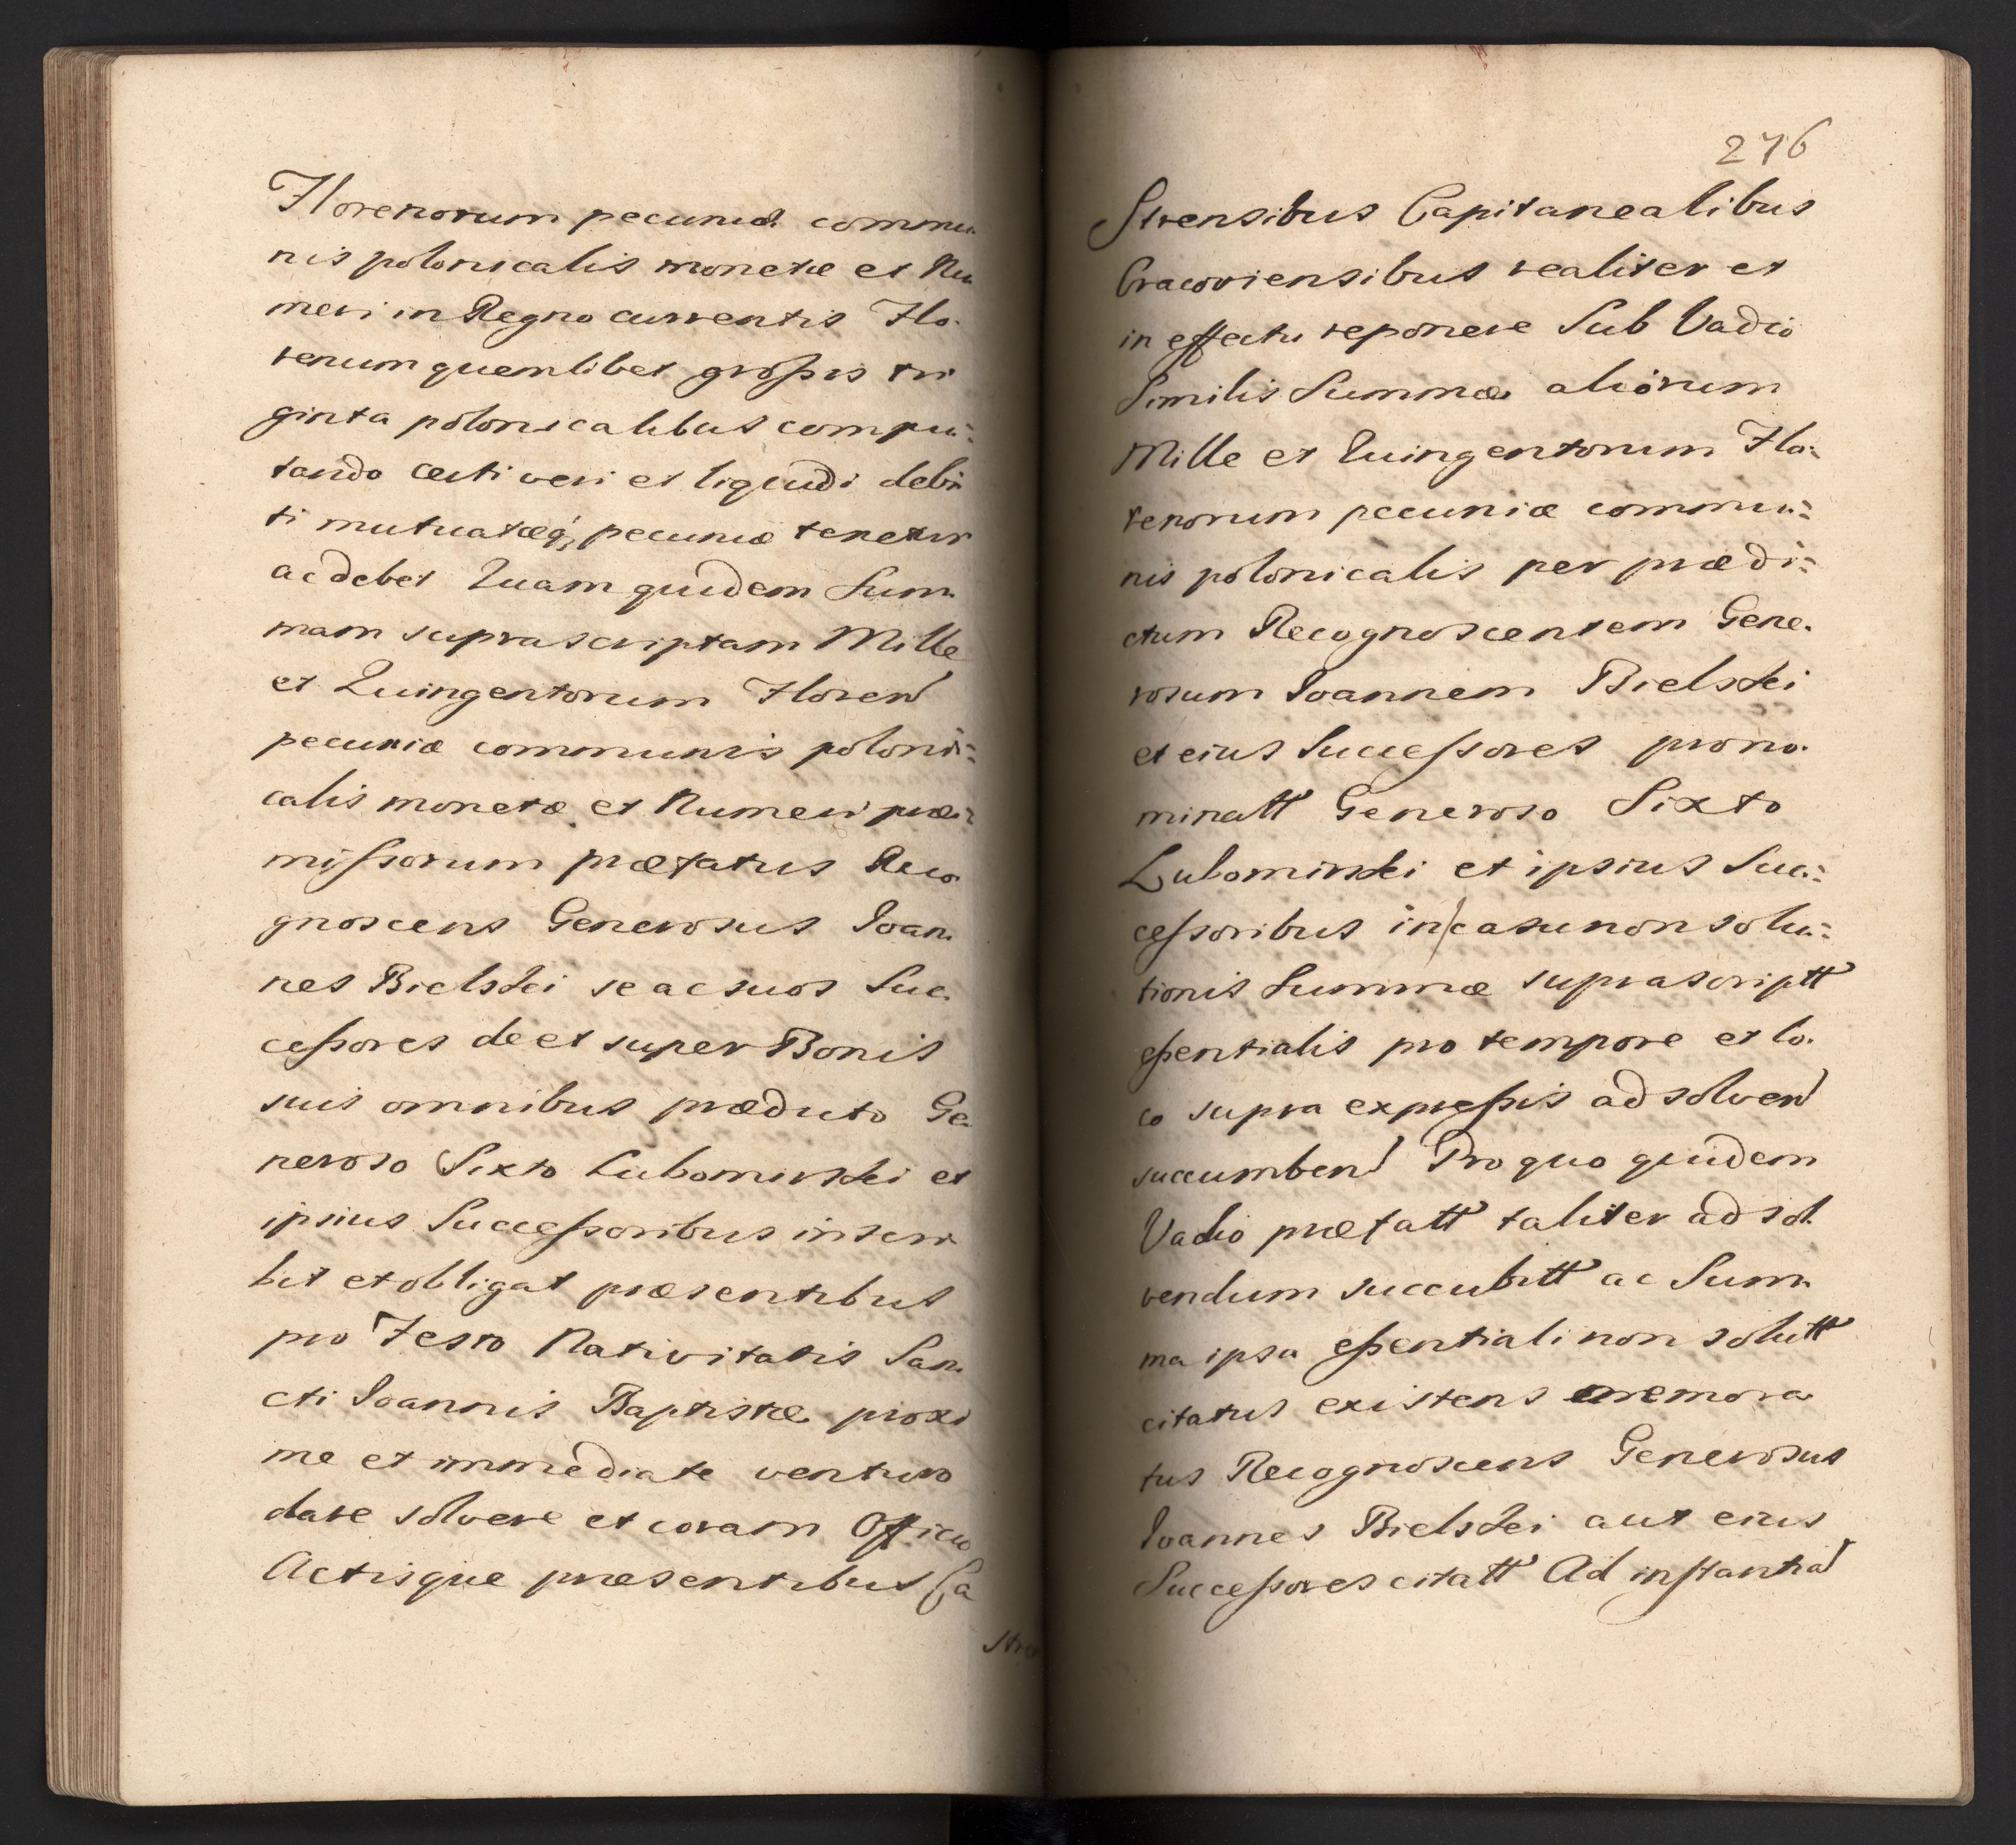 Florenorum pecuniæ commu-
nis polonicalis monetæ et Nu
meri in Regno currentis Flo-
renum quemlibet grossis tri
ginta polonicalibus compu:
tando certi veri et liquidi debi
ti mutuatæq; pecuniæ tenetur
ac debet Quam quidem Sum-
mam suprascriptam Mille
et Quingentorum Floren
pecuniæ communis poloni:
calis monetæ et Numeri præ:
missorum præfatus Reco
gnoscens Generosus Ioan-
nes Bielski se ac suos Suc-
cessores de et super Bonis
suis omnibus prædicto Ge
neroso Sixto Lubomirski et
ipsius Successoribus inscri
bit et obligat præsentibus
pro Festo Nativitatis San-
cti Ioannis Baptistæ proxi
me et immediate venturo
dare solvere et coram Officio
Actisque præsentibus Ca
stre
276
Strensibus Capitanealibus
Cracoviensibus realiter et
in effectu reponere Sub Vadio
Similis Summæ aliorum
Mille et Quingentorum Flo:
renorum pecuniæ commu:
nis polonicalis per prædi:
ctum Recognoscentem Gene-
rosum Ioannem Bielski
et eius Successores prono-
minatt Generoso Sixto
Lubomirski et ipsius Suc:
cessoribus in casu non solu:
tionis Summæ suprascriptt
essentialis pro tempore et lo-
co supra expressis ad solven
succumben Pro quo quidem
Vadio præfatt taliter ad sol-
vendum succubitt ac Sum-
ma ipsa essentiali non solutt
citatus existens memora
tus Recognoscens Generosus
Ioannes Bielski aut eius
Successores citatt Ad instantia